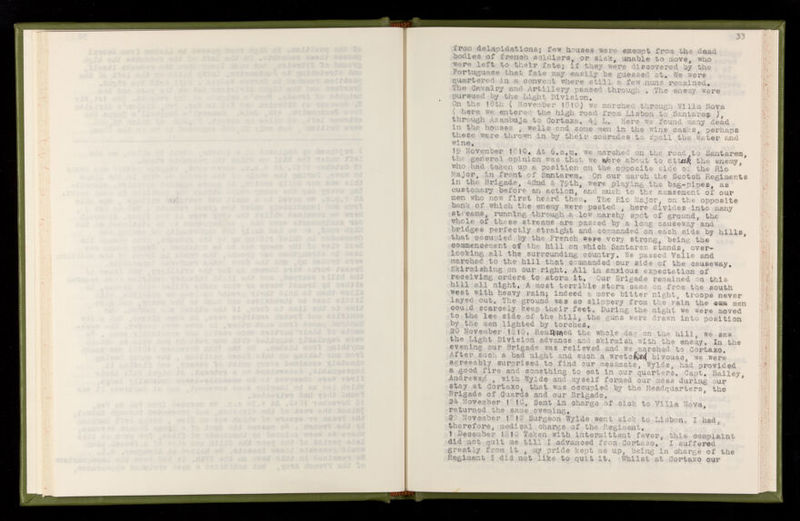 33
from delapidations; few houses were exempt from the dead
bodies of french soldiers, or sick, unable to move, who
were left to their fate; if they were discovered by the
Portuguese that fate may easily be guessed at. We were
quartered in a convent where still a few nuns remained.
The Cavalry and Artillery passed through . The enemy were
pursued by the Light Division.
On the 18th ( November 1810) we marched through Villa Nova
( here we entered the high road from Lisbon to Santarem ),
through Azambuja to Cartaxo. 4½ L. Here we found many dead
in the houses , wells and some men in the wine casks, perhaps
these were thrown in by their comrades to spoil the water and
wine.
19 November 1810. At 6.a.m. we marched on the road to Santarem,
the general opinion was that we were about to attack the enemy,
who had taken up a position on the opposite side of the Rio
Major, in front of Santarem. On our march the Scotch Regiments
in the Brigade, 42nd & 79th, were playing the bag-pipes, as
customary before an action, and much to the amusement of our
men who now first heard them. The Rio Major, on the opposite
bank of which the enemy were posted , here divides into many
streams, running through a low marshy spot of ground, the
whole of these streams are passed by a long causeway and
bridges perfectly straight and commanded on each side by hills,
that occupied by the French were very strong, being the
commencement of the hill on which Santarem stands, over-
looking all the surrounding country. We passed Valle and
marched to the hill that commanded our side of the causeway.
Skirmishing on our right. All in anxious expectation of
receiving orders to storm it. Our Brigade remained on this
hill all night. A most terrible storm came on from the south
west with heavy rain; indeed a more bitter night, troops never
layed out. The ground was so slippery from the rain the men
could scarcely keep their feet. During the night we were moved
to the lee side of the hill, the guns were drawn into position
by the men lighted by torches.
20 November 1810. Remained the whole day on the hill, we saw
the Light Division advance and skirmish with the enemy. In the
evening our Brigade was relieved and we marched to Cartaxo.
After such a bad night and such a wretched bivouac, we were
agreeably surprised to find our messmate, Wylde, had provided
a good fire and something to eat in our quarters. Capt. Bailey,
Andrews , with Wylde and myself formed our mess during our
stay at Cortaxo, that was occupied by the Headquarters, the
Brigade of Guards and our Brigade.
24 November 1810. Sent in charge of sick to Villa Nova,
returned the same evening.
November 1810 Surgeon Wylde went sick to Lisbon. I had,
therefore, medical charge of the Regiment.
1 December 1810 Taken with intermittent fever, this complaint
did not quit me till I advanced from Cortaxo, I suffered
greatly from it , my pride kept me up, being in charge of the
Regiment I did not like to quit it. Whilst at Cortaxo our